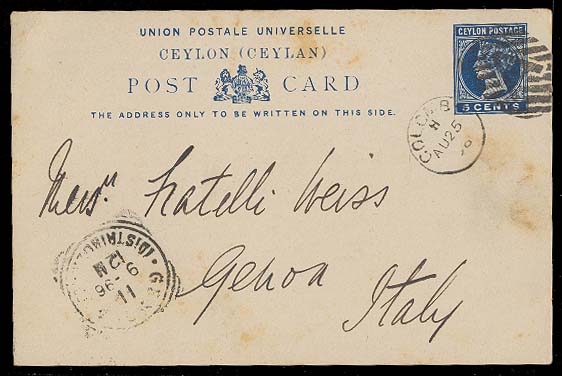 UNION POSTALE UNIVERSELLE
CEYLON (CEYLAN)
POST CARD
THE ADDRESS ONLY TO BE WRITTEN ON THIS SIDE.
CEYLON POSTAGE
5 CENTS
COLOMB
H
AU 25
Messrs. Fratelli Weiss
Genoa
Italy
12 M
11 9 - 96